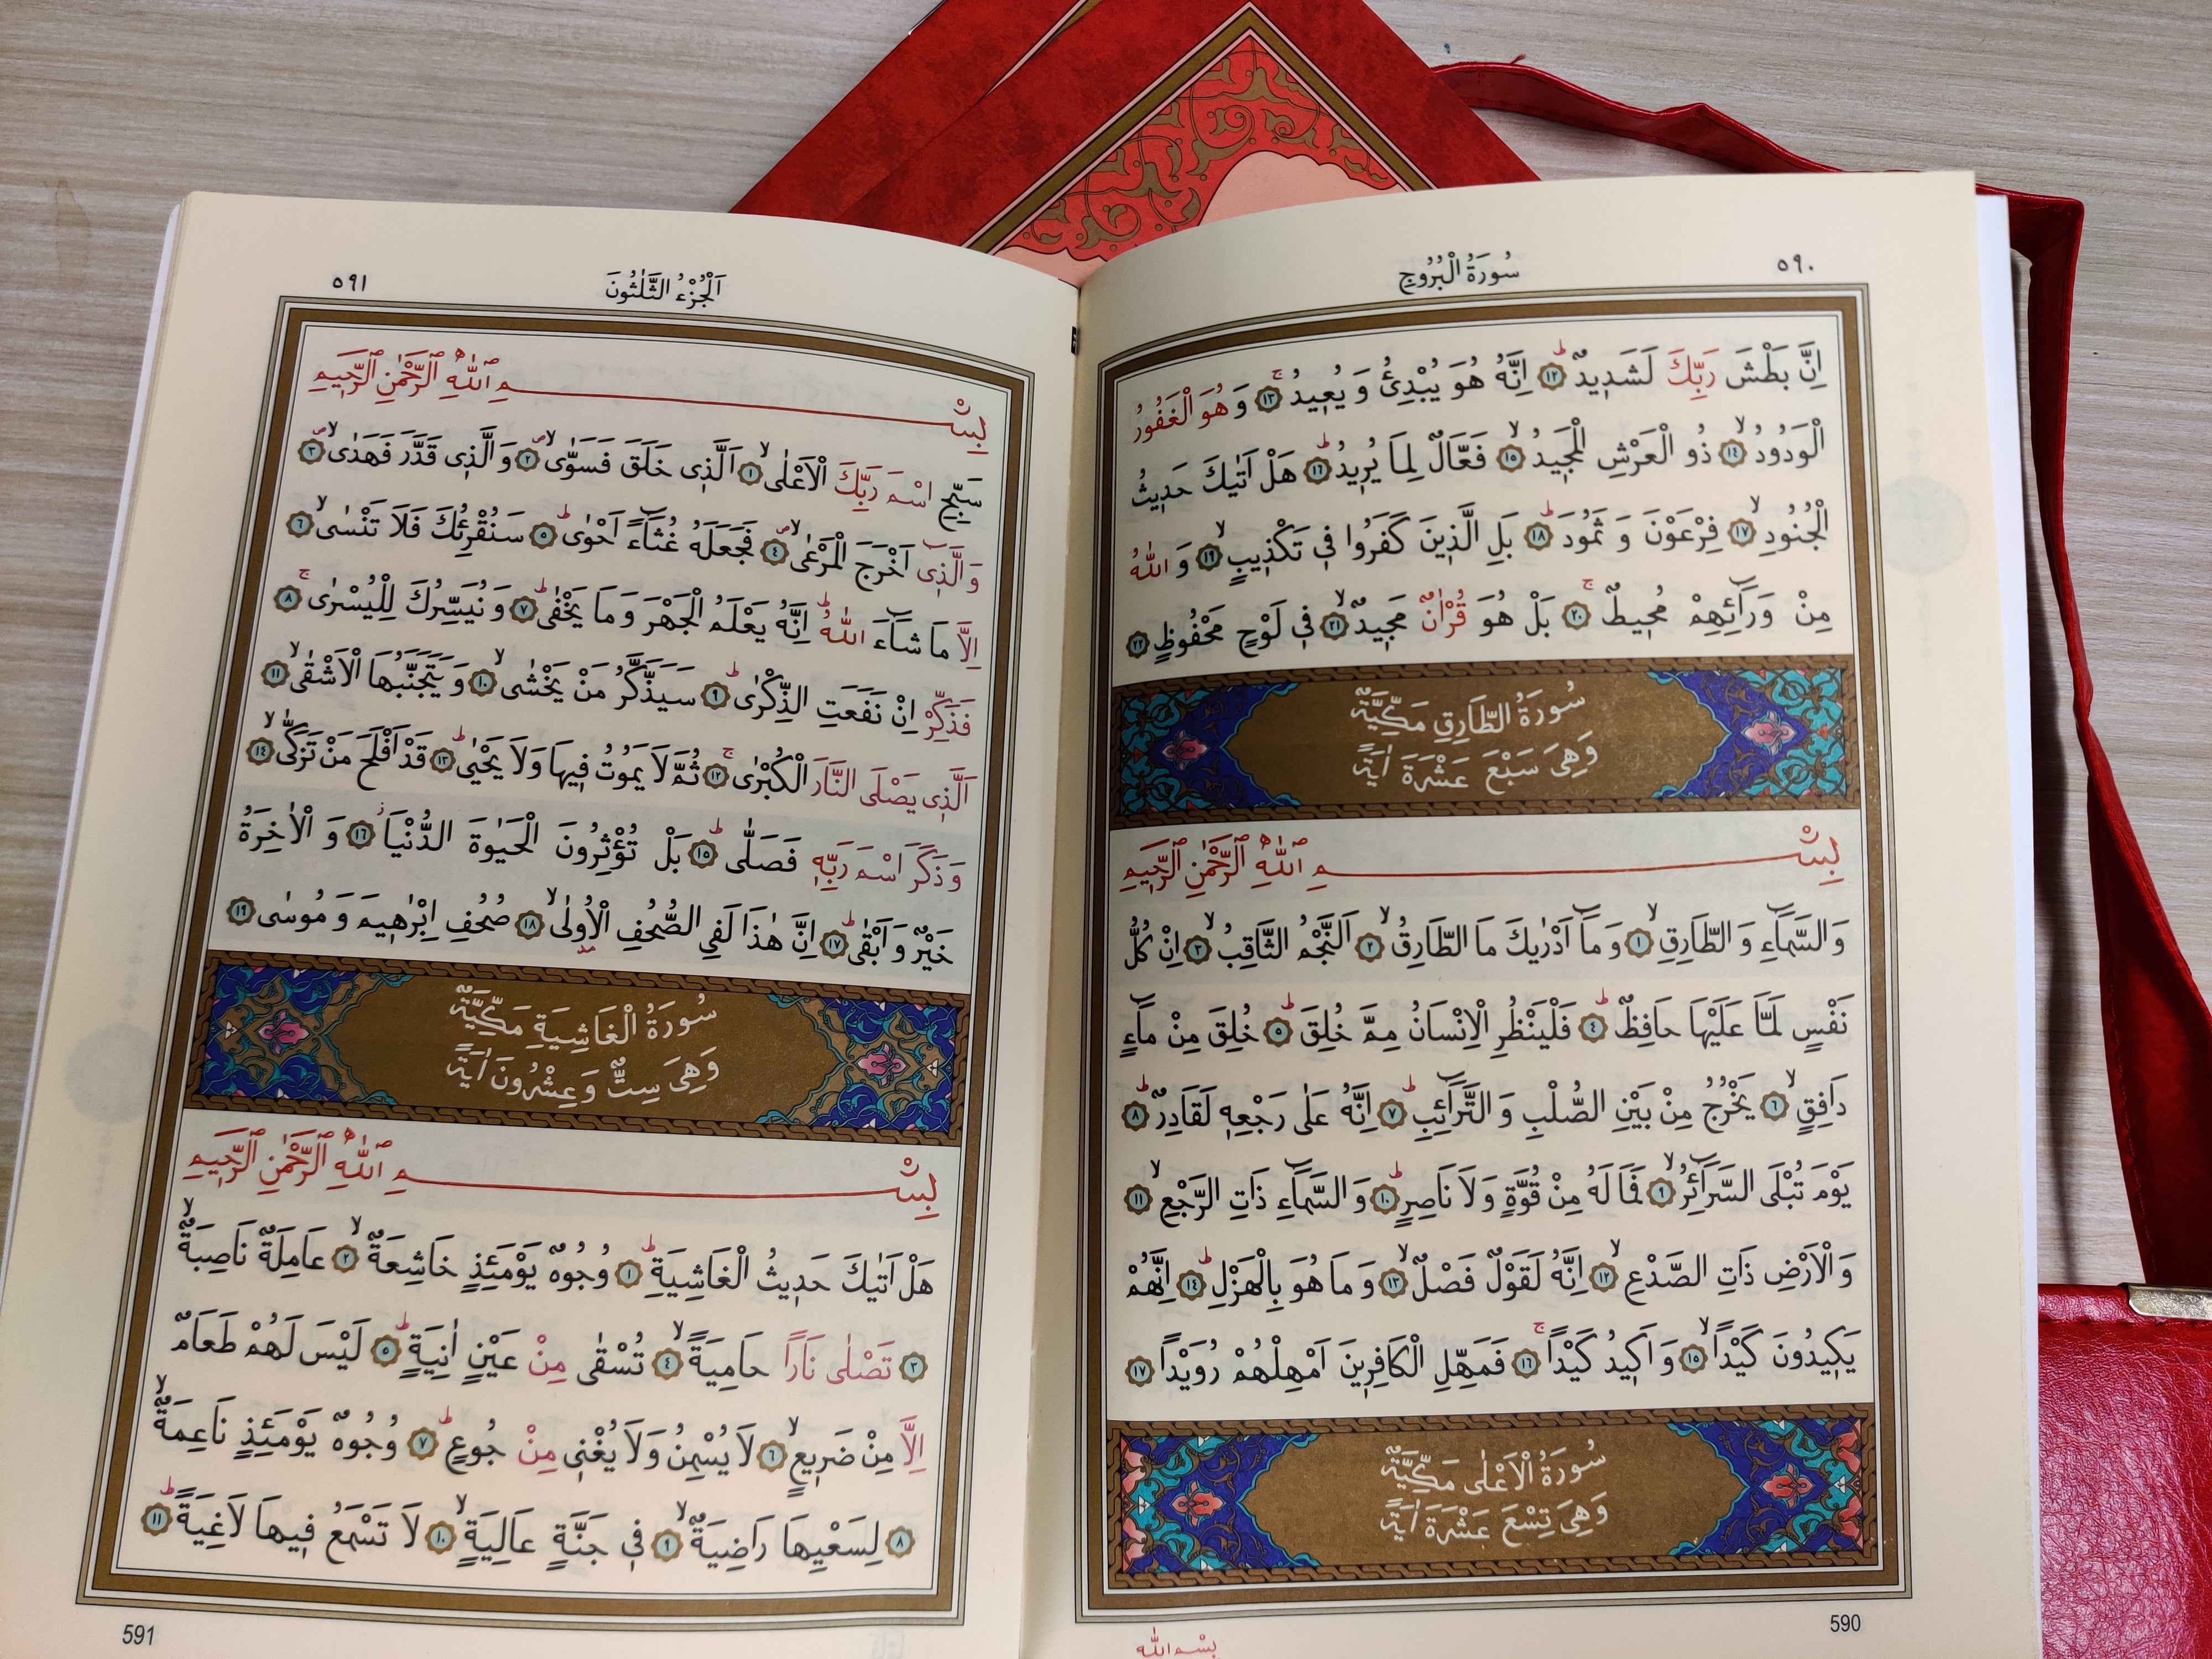 سُورَةُ الْبُرُوجِ
٥٩٠
اِنَّ بَطْشَ رَبِّكَ لَشَدٖيدٌ ﴿١٢﴾ اِنَّهُ هُوَ يُبْدِئُ وَ يُعٖيدُ ﴿١٣﴾ وَ هُوَ الْغَفُورُ
الْوَدُودُ ﴿١٤﴾ ذُو الْعَرْشِ الْمَجٖيدُ ﴿١٥﴾ فَعَّالٌ لِمَا يُرٖيدُ ﴿١٦﴾ هَلْ اَتٰيكَ حَدٖيثُ
الْجُنُودِ ﴿١٧﴾ فِرْعَوْنَ وَ ثَمُودَ ﴿١٨﴾ بَلِ الَّذٖينَ كَفَرُوا فٖى تَكْذٖيبٍ ﴿١٩﴾ وَ اللّٰهُ
مِنْ وَرَٓائِهِمْ مُحٖيطٌ ﴿٢٠﴾ بَلْ هُوَ قُرْاٰنٌ مَجٖيدٌ ﴿٢١﴾ فٖى لَوْحٍ مَحْفُوظٍ ﴿٢٢﴾
سُورَةُ الطَّارِقِ مَكِّيَّةٌ
وَهِىَ سَبْعَ عَشْرَةَ اٰيَةً
بِسْمِ اللّٰهِ الرَّحْمٰنِ الرَّحٖيمِ
وَ السَّمَٓاءِ وَ الطَّارِقِ ﴿١﴾ وَ مَٓا اَدْرٰيكَ مَا الطَّارِقُ ﴿٢﴾ اَلنَّجْمُ الثَّاقِبُ ﴿٣﴾ اِنْ كُلُّ
نَفْسٍ لَمَّا عَلَيْهَا حَافِظٌ ﴿٤﴾ فَلْيَنْظُرِ الْاِنْسَانُ مِمَّ خُلِقَ ﴿٥﴾ خُلِقَ مِنْ مَٓاءٍ
دَافِقٍ ﴿٦﴾ يَخْرُجُ مِنْ بَيْنِ الصُّلْبِ وَ التَّرَٓائِبِ ﴿٧﴾ اِنَّهُ عَلٰى رَجْعِهٖ لَقَادِرٌ ﴿٨﴾
يَوْمَ تُبْلَى السَّرَٓائِرُ ﴿٩﴾ فَمَا لَهُ مِنْ قُوَّةٍ وَ لَا نَاصِرٍ ﴿١٠﴾ وَ السَّمَٓاءِ ذَاتِ الرَّجْعِ ﴿١١﴾
وَ الْاَرْضِ ذَاتِ الصَّدْعِ ﴿١٢﴾ اِنَّهُ لَقَوْلٌ فَصْلٌ ﴿١٣﴾ وَ مَا هُوَ بِالْهَزْلِ ﴿١٤﴾ اِنَّهُمْ
يَكٖيدُونَ كَيْدًا ﴿١٥﴾ وَ اَكٖيدُ كَيْدًا ﴿١٦﴾ فَمَهِّلِ الْكَافِرٖينَ اَمْهِلْهُمْ رُوَيْدًا ﴿١٧﴾
سُورَةُ الْاَعْلٰى مَكِّيَّةٌ
وَهِىَ تِسْعَ عَشْرَةَ اٰيَةً
590
بِسْمِ اللّٰهِ
اَلْجُزْءُ الثَّلٰثُونَ
٥٩١
بِسْمِ اللّٰهِ الرَّحْمٰنِ الرَّحٖيمِ
سَبِّحِ اسْمَ رَبِّكَ الْاَعْلٰى ﴿١﴾ اَلَّذٖى خَلَقَ فَسَوّٰى ﴿٢﴾ وَ الَّذٖى قَدَّرَ فَهَدٰى ﴿٣﴾
وَ الَّذٖٓى اَخْرَجَ الْمَرْعٰى ﴿٤﴾ فَجَعَلَهُ غُثَٓاءً اَحْوٰى ﴿٥﴾ سَنُقْرِئُكَ فَلَا تَنْسٰى ﴿٦﴾
اِلَّا مَا شَٓاءَ اللّٰهُ اِنَّهُ يَعْلَمُ الْجَهْرَ وَ مَا يَخْفٰى ﴿٧﴾ وَ نُيَسِّرُكَ لِلْيُسْرٰى ﴿٨﴾
فَذَكِّرْ اِنْ نَفَعَتِ الذِّكْرٰى ﴿٩﴾ سَيَذَّكَّرُ مَنْ يَخْشٰى ﴿١٠﴾ وَ يَتَجَنَّبُهَا الْاَشْقٰى ﴿١١﴾
اَلَّذٖى يَصْلَى النَّارَ الْكُبْرٰى ﴿١٢﴾ ثُمَّ لَا يَمُوتُ فٖيهَا وَلَا يَحْيٰى ﴿١٣﴾ قَدْ اَفْلَحَ مَنْ تَزَكّٰى ﴿١٤﴾
وَ ذَكَرَ اسْمَ رَبِّهٖ فَصَلّٰى ﴿١٥﴾ بَلْ تُؤْثِرُونَ الْحَيٰوةَ الدُّنْيَا ﴿١٦﴾ وَ الْاٰخِرَةُ
خَيْرٌ وَ اَبْقٰى ﴿١٧﴾ اِنَّ هٰذَا لَفِى الصُّحُفِ الْاُولٰى ﴿١٨﴾ صُحُفِ اِبْرٰهٖيمَ وَ مُوسٰى ﴿١٩﴾
سُورَةُ الْغَاشِيَةِ مَكِّيَّةٌ
وَهِىَ سِتٌّ وَ عِشْرُونَ اٰيَةً
بِسْمِ اللّٰهِ الرَّحْمٰنِ الرَّحٖيمِ
هَلْ اَتٰيكَ حَدٖيثُ الْغَاشِيَةِ ﴿١﴾ وُجُوهٌ يَوْمَئِذٍ خَاشِعَةٌ ﴿٢﴾ عَامِلَةٌ نَاصِبَةٌ
﴿٣﴾ تَصْلٰى نَارًا حَامِيَةً ﴿٤﴾ تُسْقٰى مِنْ عَيْنٍ اٰنِيَةٍ ﴿٥﴾ لَيْسَ لَهُمْ طَعَامٌ
اِلَّا مِنْ ضَرٖيعٍ ﴿٦﴾ لَا يُسْمِنُ وَلَا يُغْنٖى مِنْ جُوعٍ ﴿٧﴾ وُجُوهٌ يَوْمَئِذٍ نَاعِمَةٌ
﴿٨﴾ لِسَعْيِهَا رَاضِيَةٌ ﴿٩﴾ فٖى جَنَّةٍ عَالِيَةٍ ﴿١٠﴾ لَا تَسْمَعُ فٖيهَا لَاغِيَةً ﴿١١﴾
591